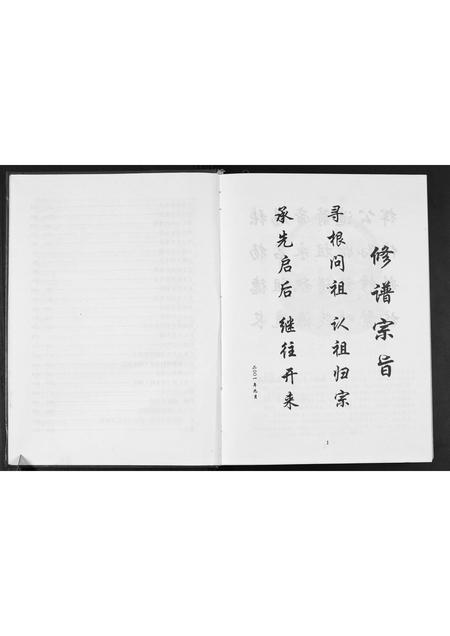 修谱宗旨
寻根问祖 认祖归宗
承先启后 继往开来
二〇〇一年九月
1